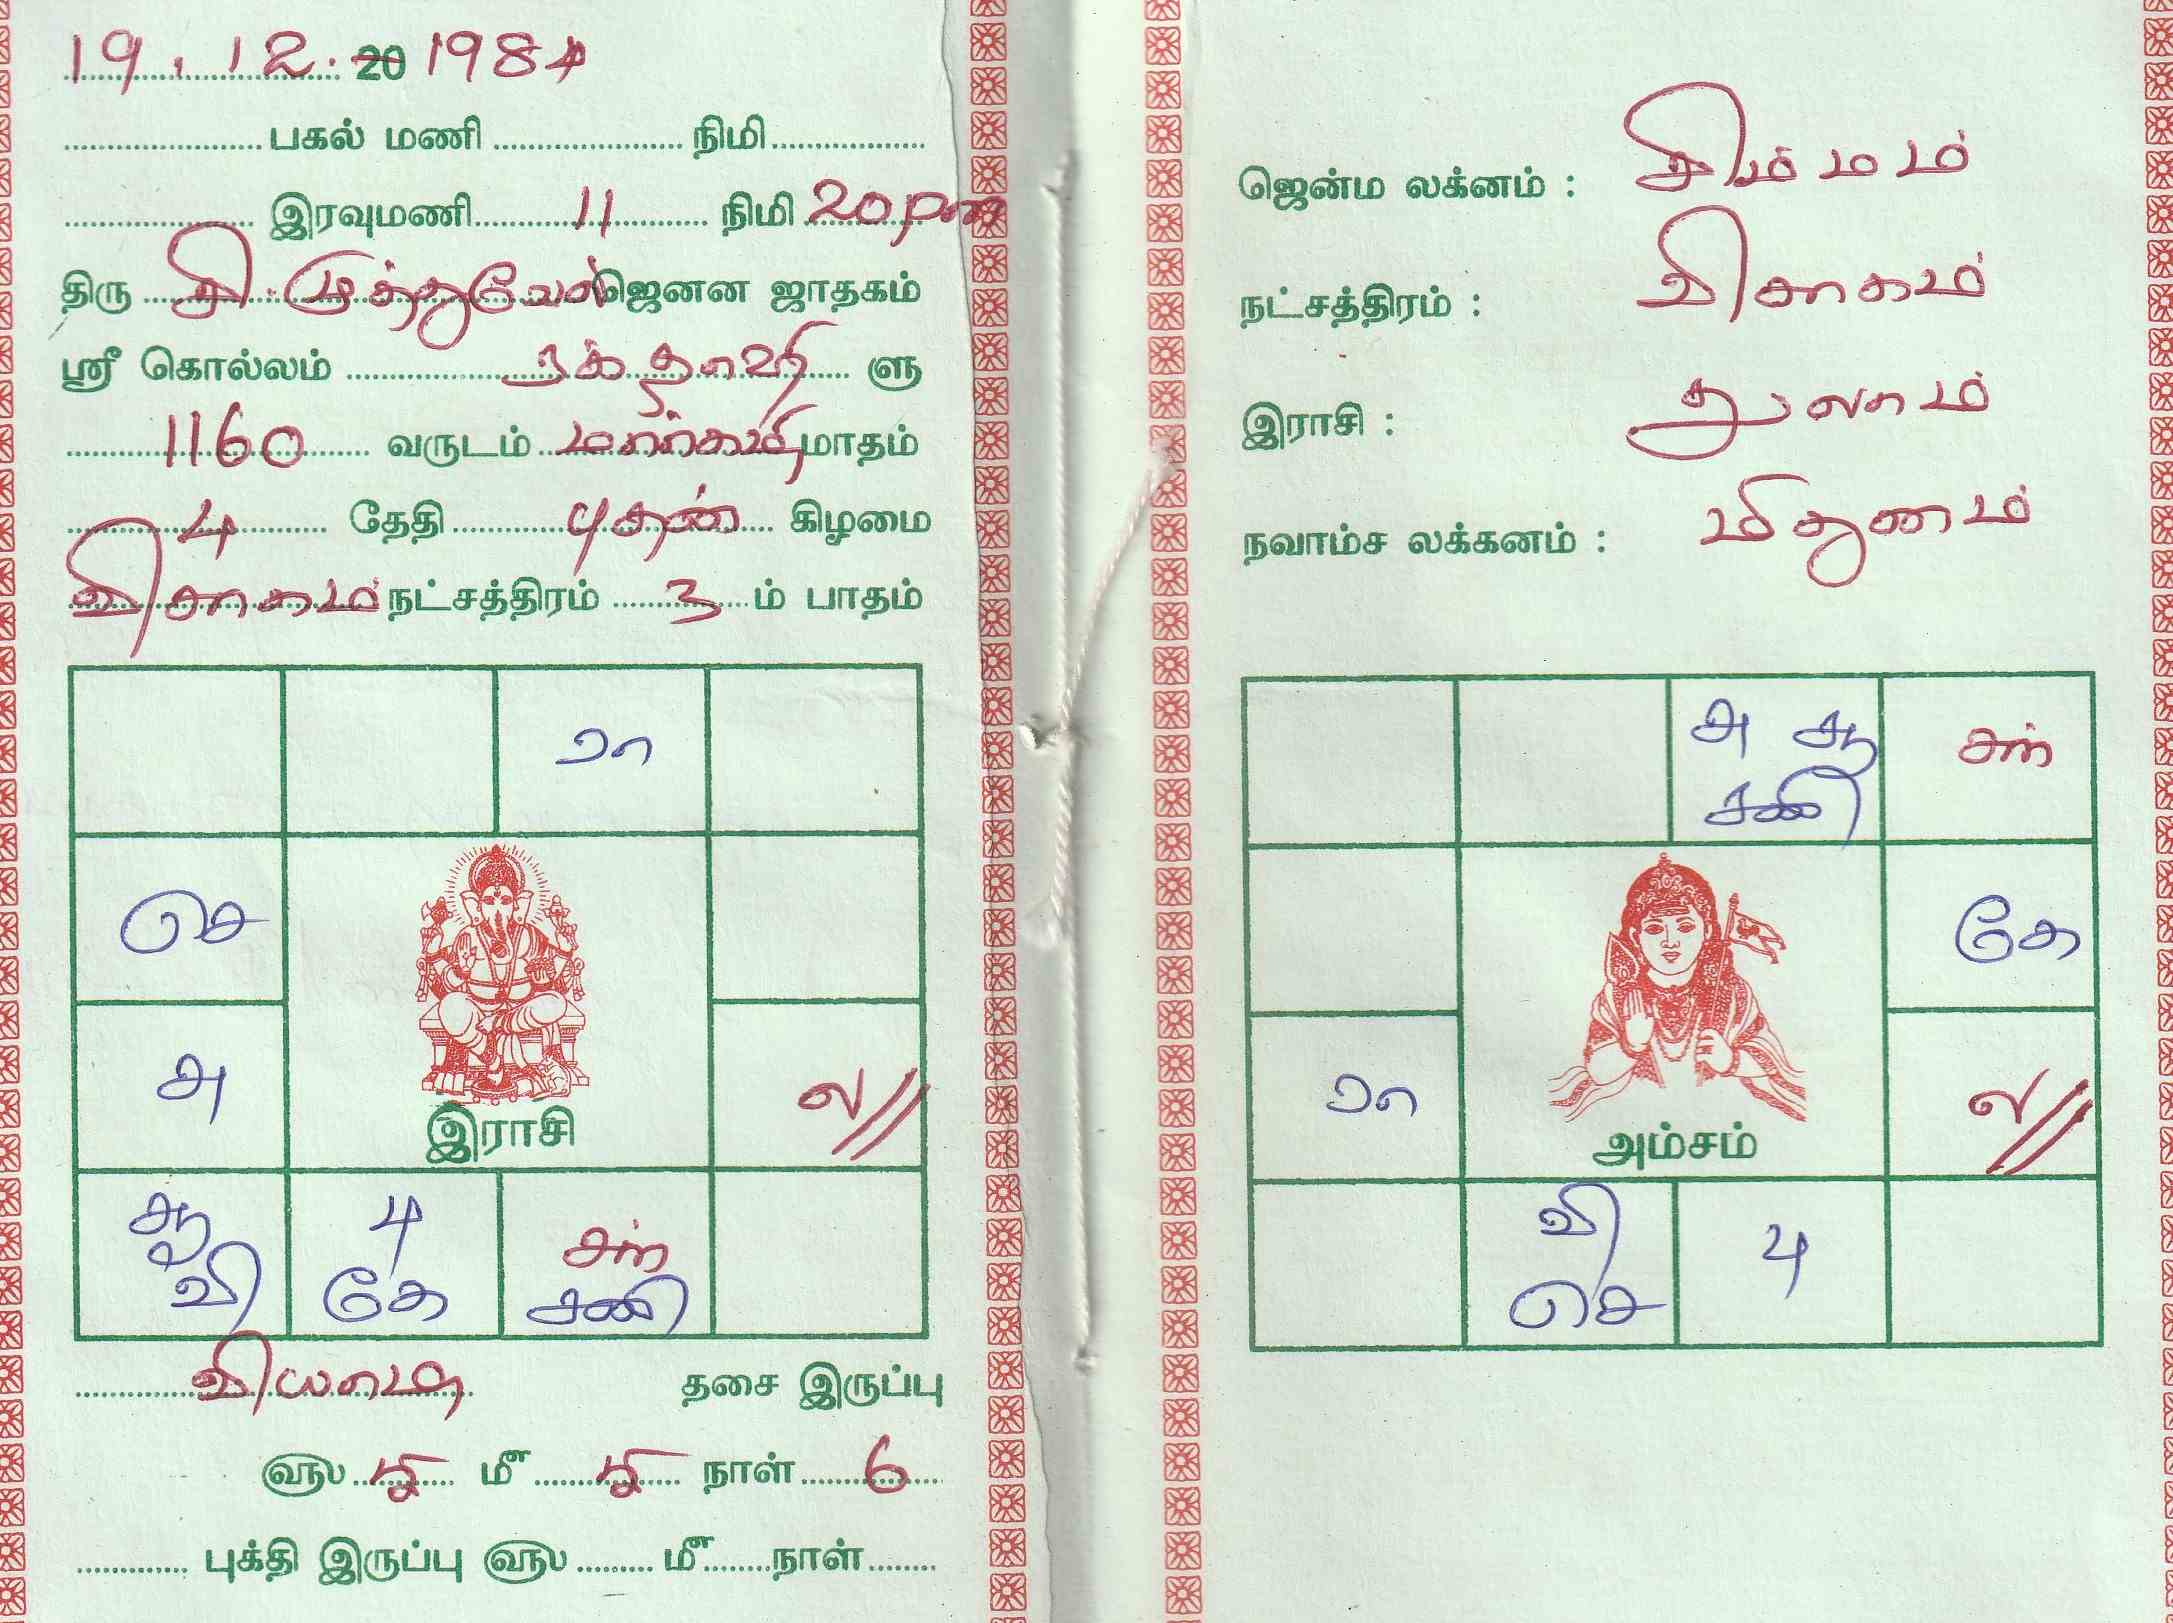 19.12.20 1984
பகல் மணி நிமி
இரவுமணி 11 நிமி 20 pm
திரு தி. முத்துவேல் ஜெனன ஜாதகம்
ஸ்ரீ கொல்லம் ரக்தாஷி ளு
1160 வருடம் மார்கழி மாதம்
4 தேதி புதன் கிழமை
விசாகம் நட்சத்திரம் 3 ம் பாதம்
ரா
செ
அ
இராசி
ல//
சு வி
பு கே
சன் சனி
வியாழ தசை இருப்பு
௵ 5 ௴ 5 நாள் 6
புக்தி இருப்பு ௵ ௴ நாள்
ஜென்ம லக்னம் : சிம்மம்
நட்சத்திரம் : விசாகம்
இராசி : துலாம்
நவாம்ச லக்கனம் : மிதுனம்
அ சு சனி
சன்
கே
ரா
அம்சம்
ல//
வி செ
பு